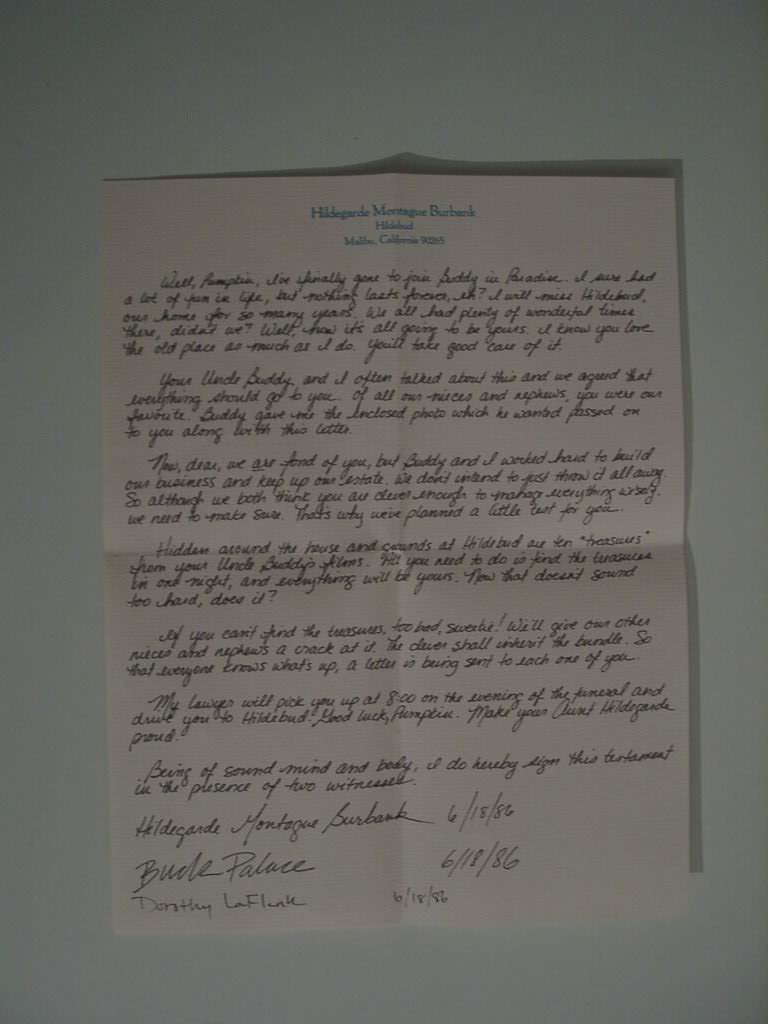 Hildegarde Montague Burbank
Hildebud
Malibu, California 90265
Well, Pumpkin, I've finally gone to join Buddy in Paradise. I sure had
a lot of fun in life, but nothing lasts forever, eh? I will miss Hildebud,
our home for so many years. We all had plenty of wonderful times
there, didn't we? Well, now it's all going to be yours. I know you love
the old place as much as I do. You'll take good care of it.
Your Uncle Buddy and I often talked about this and we agreed that
everything should go to you. Of all our nieces and nephews, you were our
favorite. Buddy gave me the enclosed photo which he wanted passed on
to you along with this letter.
Now, dear, we are fond of you, but Buddy and I worked hard to build
our business and keep up our estate. We don't intend to just throw it all away.
So although we both think you are clever enough to manage everything wisely,
we need to make sure. That's why we've planned a little test for you.
Hidden around the house and grounds at Hildebud are ten "treasures"
from your Uncle Buddy's films. All you need to do is find the treasures
in one night, and everything will be yours. Now that doesn't sound
too hard, does it?
If you can't find the treasures, too bad, sweetie! We'll give our other
nieces and nephews a crack at it. The clever shall inherit the bundle. So
that everyone knows what's up, a letter is being sent to each one of you.
My lawyer will pick you up at 8:00 on the evening of the funeral and
drive you to Hildebud. Good luck, Pumpkin. Make your Aunt Hildegarde
proud.
Being of sound mind and body, I do hereby sign this testament
in the presence of two witnesses.
Hildegarde Montague Burbank 6/18/86
Buck Palace 6/18/86
Dorothy LaFlenk 6/18/86